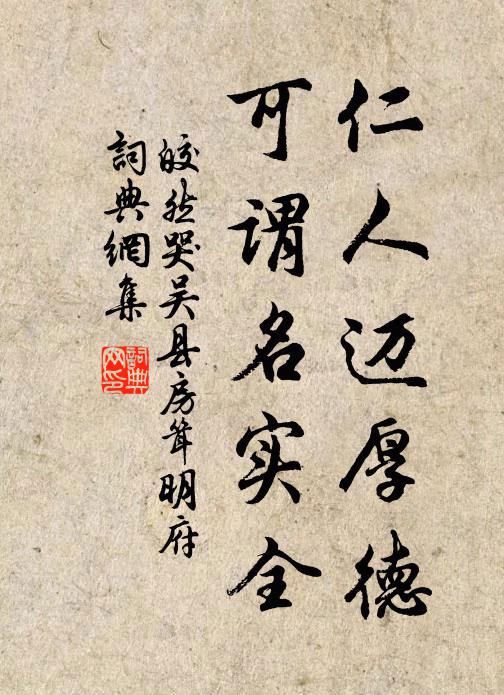 仁人迈厚德
可谓名实全
皎然哭吴县房耸明府
詞典網集
詞典网印